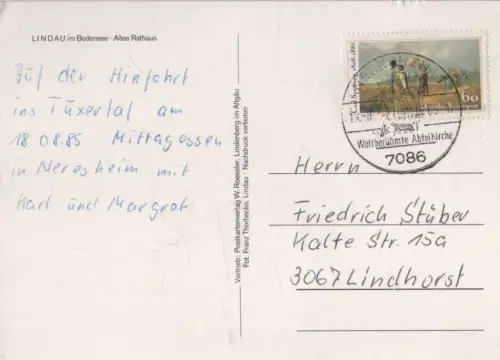 LINDAU im Bodensee · Altes Rathaus
Auf der Hinfahrt
ins Tuxertal am
18 08.85 Mittagessen
in Neresheim mit
Karl und Margrot
Vertrieb: Postkartenverlag W. Roessler, Lindenberg im Allgäu
Fot. Franz Thorbecke, Lindau · Nachdruck verboten
Carl Spitzweg 1808-1885
60
Deutsche Bundespost
Weltberühmte Abteikirche
7086
Herrn
Friedrich Stüber
Kalte Str. 15a
3067 Lindhorst